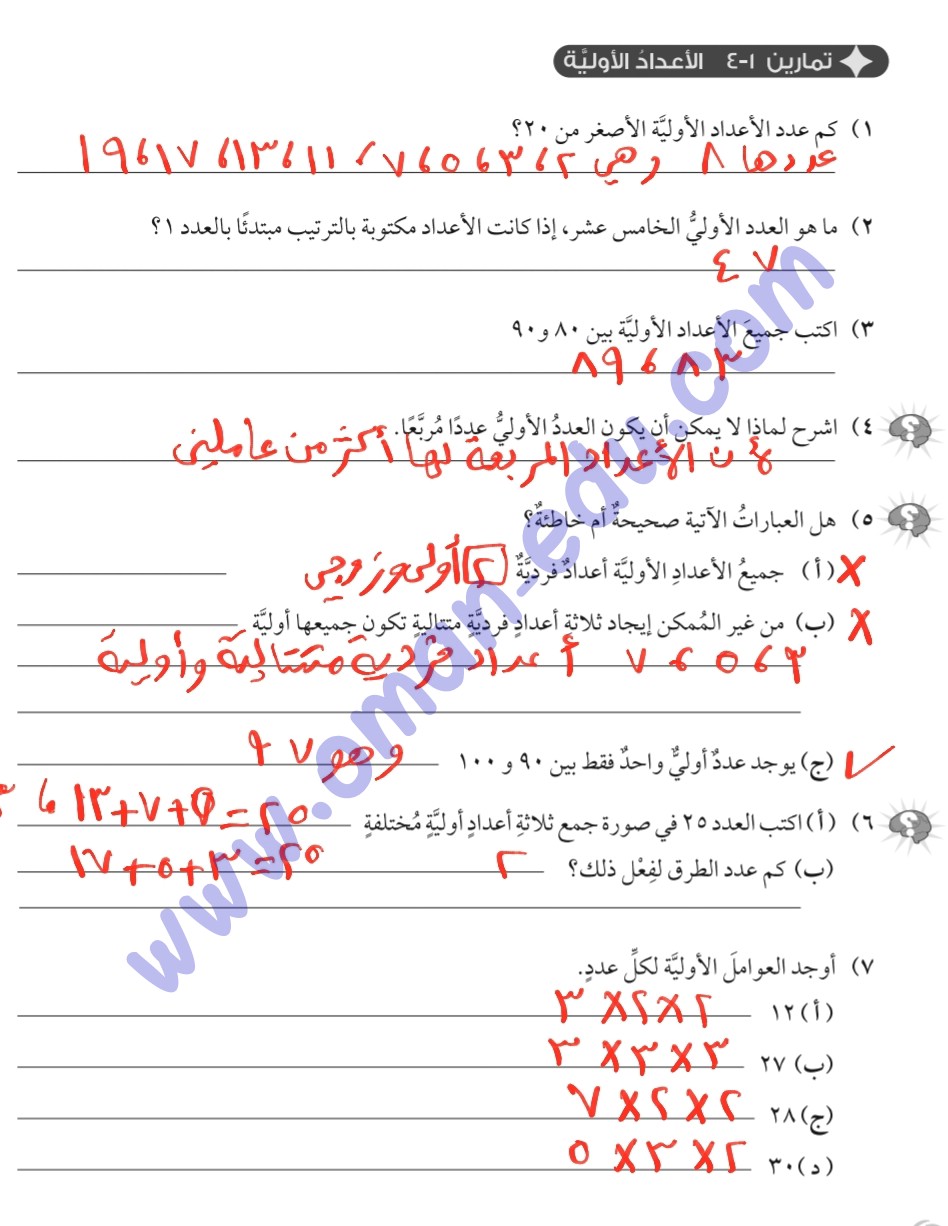 تمارين ١-٤ الأعدادُ الأوليَّة
١) كم عدد الأعداد الأوليَّة الأصغر من ٢٠؟
عددها ٨ وهي ٢، ٣، ٥، ٧، ١١، ١٣، ١٧، ١٩
٢) ما هو العدد الأوليُّ الخامس عشر، إذا كانت الأعداد مكتوبة بالترتيب مبتدئًا بالعدد ١؟
٤٧
٣) اكتب جميعَ الأعداد الأوليَّة بين ٨٠ و ٩٠
٨٣، ٨٩
٤) اشرح لماذا لا يمكن أن يكون العددُ الأوليُّ عددًا مُربَّعًا.
لأن الأعداد المربعة لها أكثر من عاملين
٥) هل العباراتُ الآتية صحيحةٌ أم خاطئةٌ؟
X (أ) جميعُ الأعدادِ الأوليَّة أعدادٌ فرديَّةٌ ٢ أولي وزوجي
X (ب) من غير المُمكن إيجاد ثلاثةِ أعدادٍ فرديَّةٍ متتاليةٍ تكون جميعها أوليَّة
٣، ٥، ٧ أعداد فردية متتالية وأولية
✓ (ج) يوجد عددٌ أوليٌّ واحدٌ فقط بين ٩٠ و ١٠٠ وهو ٩٧
٦) (أ) اكتب العدد ٢٥ في صورة جمع ثلاثةِ أعدادٍ أوليَّةٍ مُختلفةٍ ١٣+٧+٥=٢٥،
(ب) كم عدد الطرق لفِعْل ذلك؟ ٢ ١٧+٥+٣=٢٥
٧) أوجد العواملَ الأوليَّة لكلِّ عددٍ.
(أ) ١٢ ٢×٢×٣
(ب) ٢٧ ٣×٣×٣
(ج) ٢٨ ٢×٢×٧
(د) ٣٠ ٢×٣×٥
www.oman-edu.com